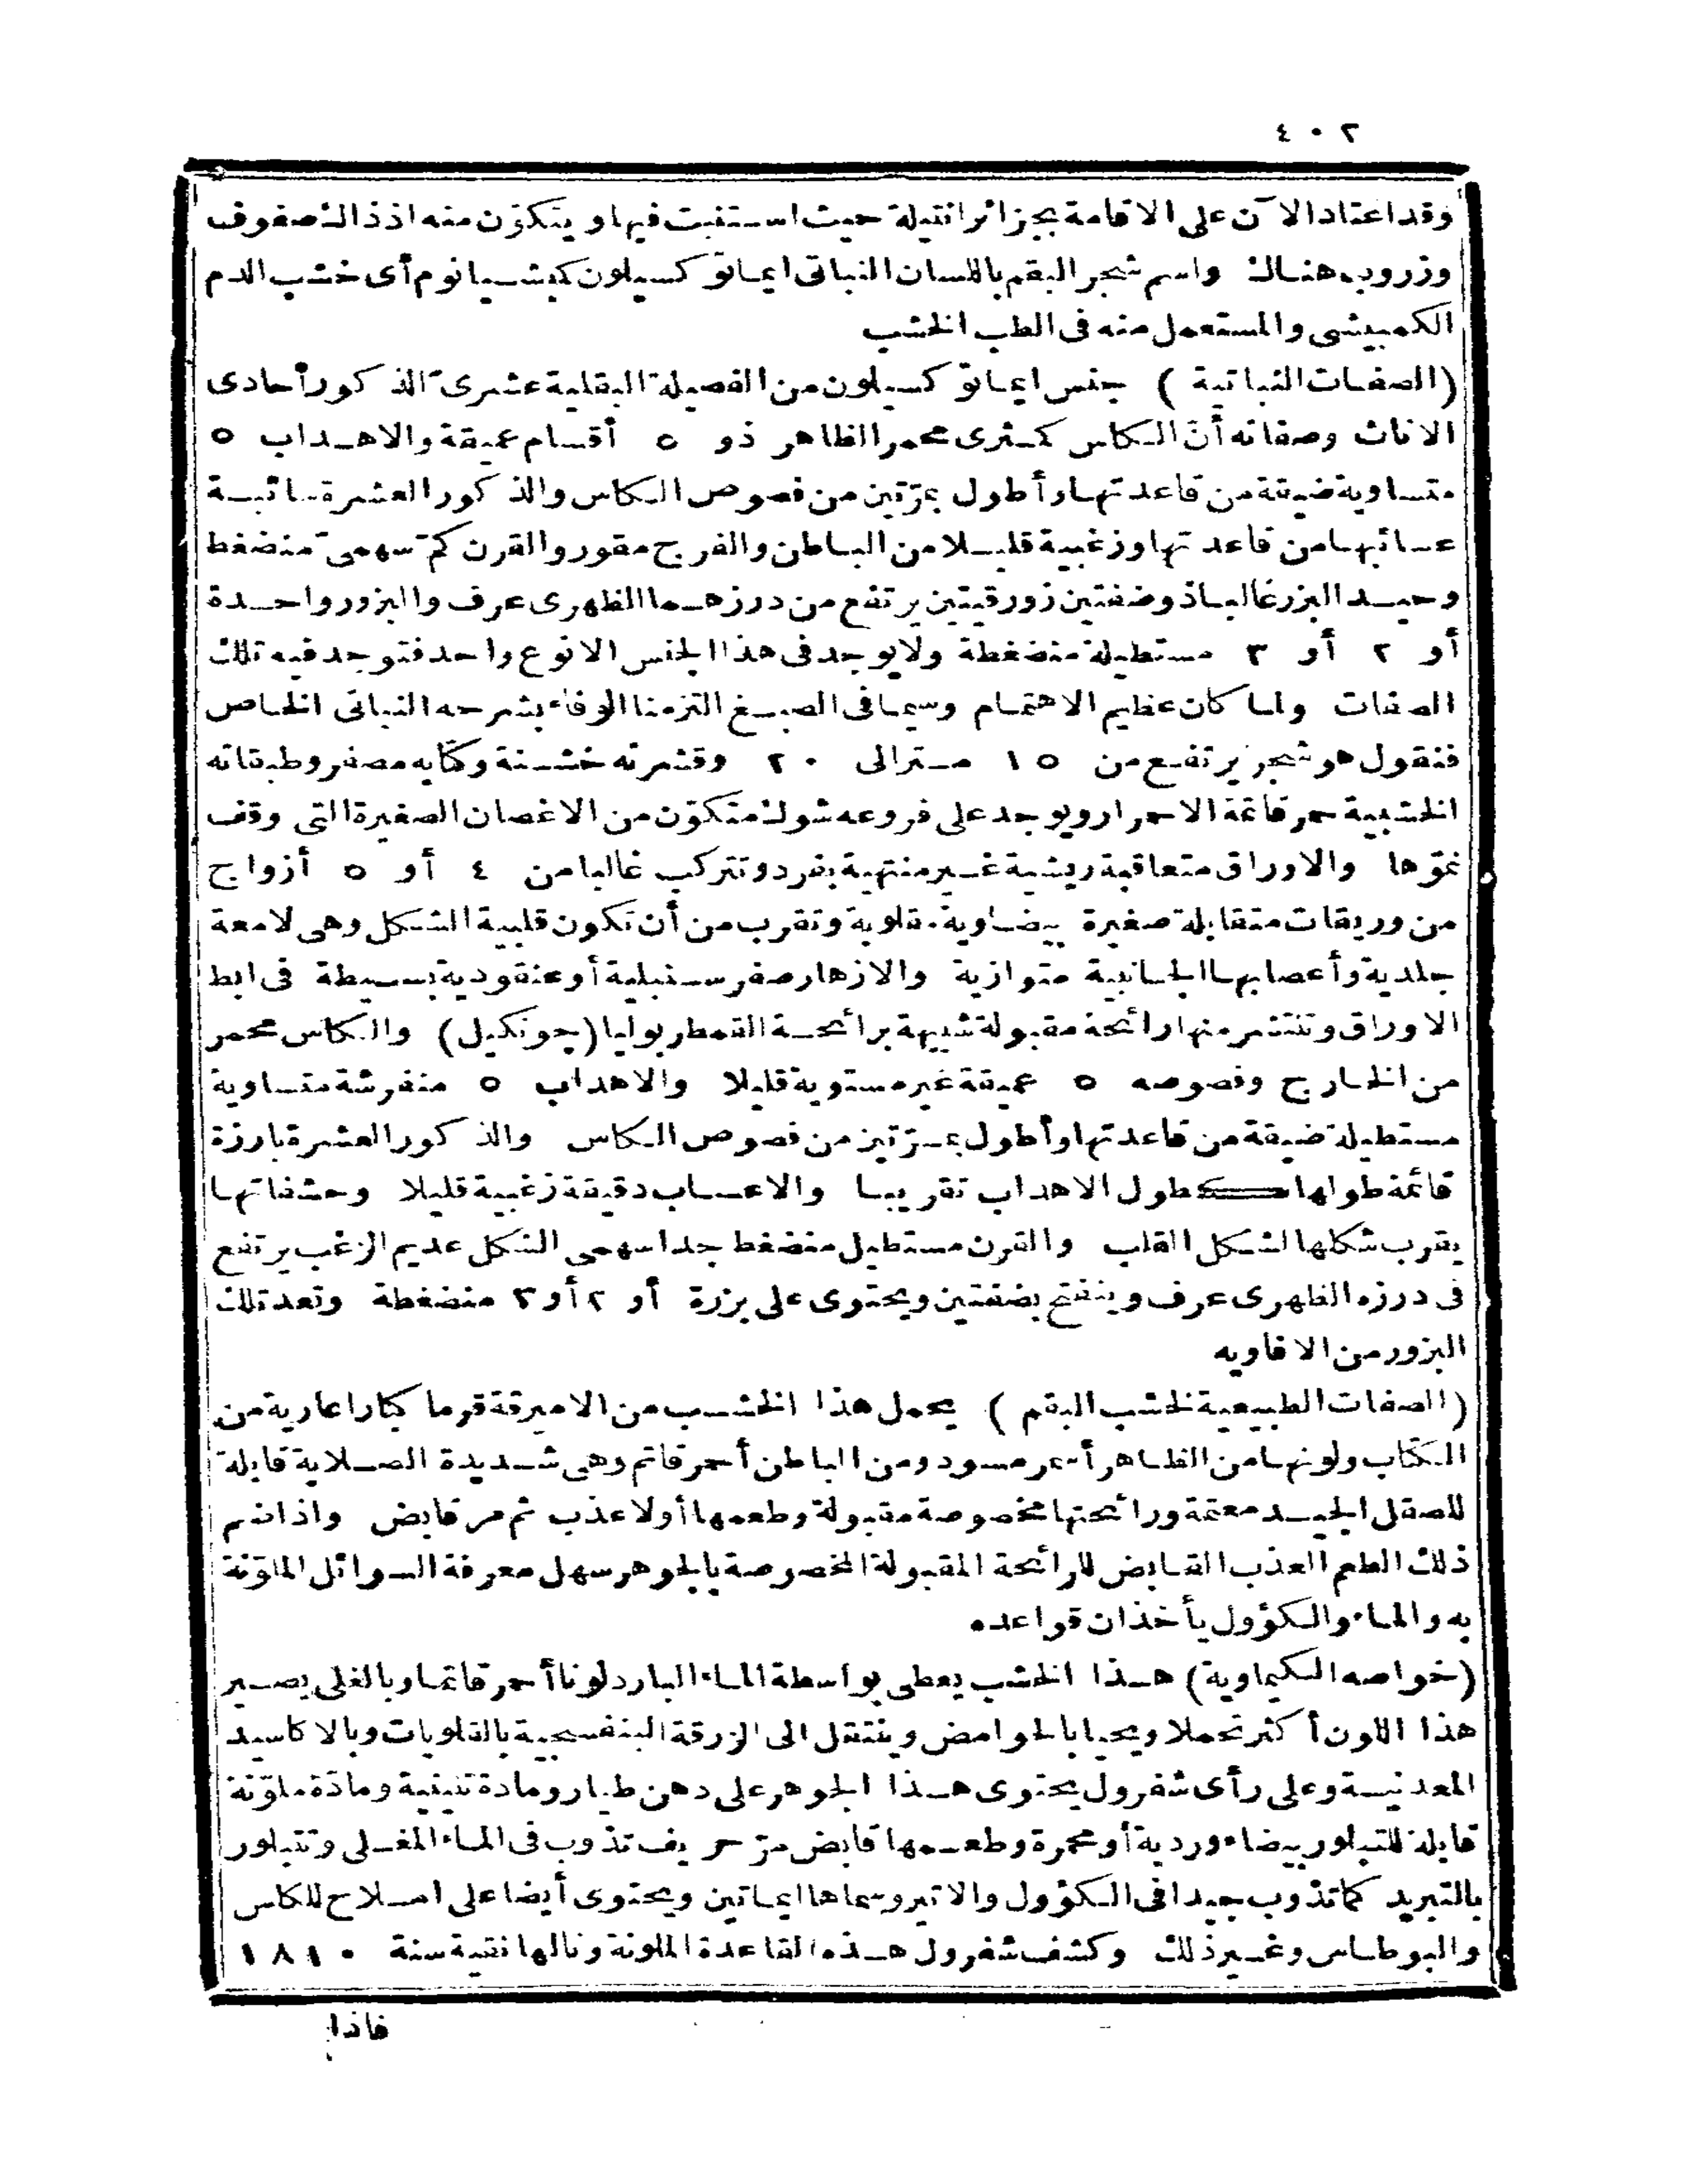 ٤٠٢
وقد اعتاد الآن على الاقامة بجزائر انتيلة حيث استنبت فيها ويتكوّن منه اذ ذاك صفوف
وزروب هناك واسم شجر البقم باللسان النباتى ايماتوكسيلون كمبشيانوم أى خشب الدم
الكمبيشى والمستعمل منه فى الطب الخشب
(الصفات النباتية) جنس ايماتوكسيلون من الفصيلة البقلية عشرىّ الذكور أحادى
الاناث وصفاته أنّ الكاس كمثرى محمر الظاهر ذو ٥ أقسام عميقة والاهداب ٥
متساوية ضيقة من قاعدتها وأطول بمرّتين من فصوص الكاس والذكور العشرة سائبة
عسائبها من قاعدتها وزغبية قليلا من الباطن والفرج مقور والقرن كمّ سهمىّ منضغط
وحيد البزر غالبا ذو ضفتين زورقيتين يرتفع من درزهما الظهرى عرف والبزور واحدة
أو ٢ أو ٣ مستطيلة منضغطة ولا يوجد فى هذا الجنس الا نوع واحد فتوجد فيه تلك
الصفات ولما كان عظيم الاهتمام وسيما فى الصبغ التزمنا الوفاء بشرحه النباتى الخاص
فنقول هو شجر يرتفع من ١٥ مترا الى ٢٠ وقشرته خشنة وكتابه مصفر وطبقاته
الخشبية حمر قاتمة الاحمرار ويوجد على فروعه شوك متكوّن من الاغصان الصغيرة التى وقف
نموّها والاوراق متعاقبة ريشية غير منتهية بفرد وتتركب غالبا من ٤ أو ٥ أزواج
من وريقات متقابلة صغيرة بيضاوية مقلوبة وتقرب من أن تكون قلبية الشكل وهى لامعة
جلدية وأعصابها الجانبية متوازية والازهار صفر سنبلية أو عنقودية بسيطة فى ابط
الاوراق وتنتشر منها رائحة مقبولة شبيهة برائحة القمطربوليا (جونكيل) والكاس محمر
من الخارج وفصوصه ٥ عميقة غير مستوية قليلا والاهداب ٥ منفرشة متساوية
مستطيلة ضيقة من قاعدتها وأطول بمرّتين من فصوص الكاس والذكور العشرة بارزة
قائمة طولها كطول الاهداب تقريبا والاعساب دقيقة زغبية قليلا وحشفاتها
يقرب شكلها لشكل القلب والقرن مستطيل منضغط جدا سهمى الشكل عديم الزغب يرتفع
فى درزه الظهرى عرف وينفتح بضفتين ويحتوى على بزرة أو ٢ أو ٣ منضغطة وتعد تلك
البزور من الافاويه
(الصفات الطبيعية لخشب البقم) يحمل هذا الخشب من الاميرقة قرما كبارا عارية من
الكتاب ولونها من الظاهر أحمر مسود ومن الباطن أحمر قاتم وهى شديدة الصلابة قابلة
للصقل الجيد معتمة ورائحتها مخصوصة مقبولة وطعمها أولا عذب ثم مر قابض واذا انضم
ذلك الطعم العذب القابض للرائحة المقبولة المخصوصة بالجوهر سهل معرفة السوائل الملوّنة
به والماء والكؤول يأخذان قواعده
(خواصه الكيماوية) هذا الخشب يعطى بواسطة الماء البارد لونا أحمر قاتما وبالغلى يصير
هذا اللون أكثر تحملا ويحيا بالحوامض وينتقل الى الزرقة البنفسجية بالقلويات وبالاكاسيد
المعدنية وعلى رأى شفرول يحتوى هذا الجوهر على دهن طيار ومادة تنينية ومادّة ملوّنة
قابلة للتبلور بيضاء وردية أو محمرة وطعمها قابض مرّ حريف تذوب فى الماء المغلى وتتبلور
بالتبريد كما تذوب جيدا فى الكؤول والاتير وسماها ايماتين ويحتوى أيضا على املاح للكلس
والبوطاس وغير ذلك وكشف شفرول هذه القاعدة الملونة ونالها نقية سنة ١٨١٠
فاذا